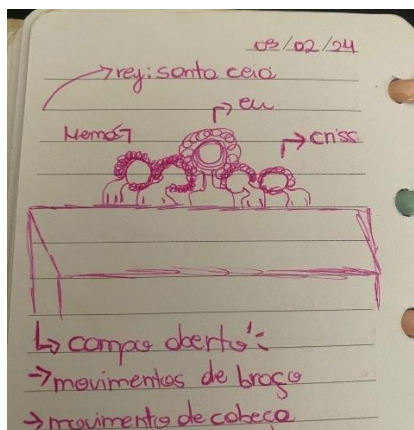 03/02/24
→ ref: santa ceia
eu
Memó
criss
↳ campo aberto
→ movimentos de braço
→ movimento de cabeça